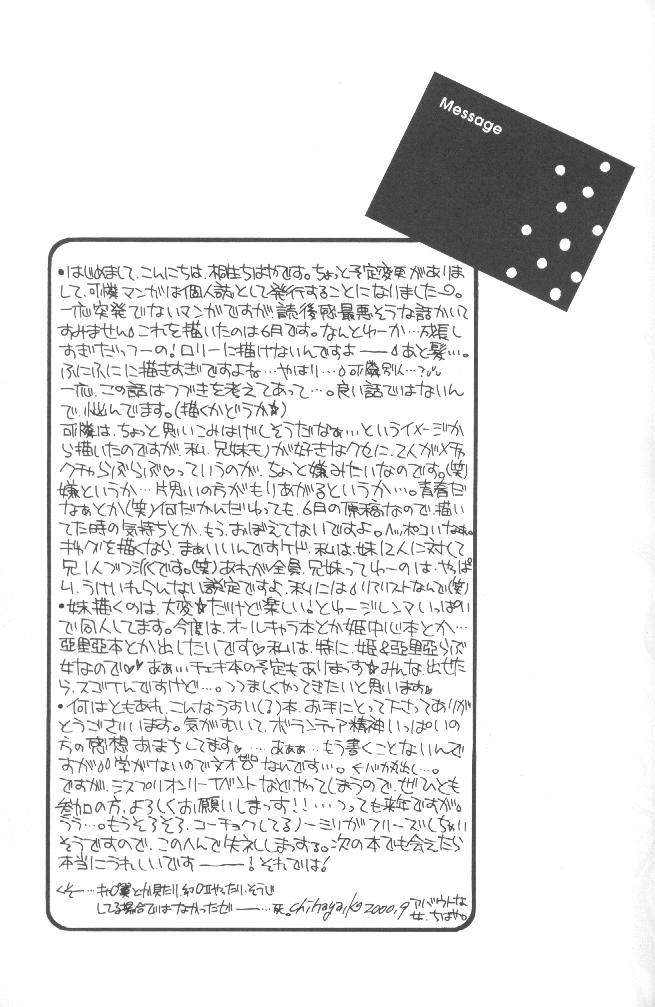 Message
•はじめまして、こんにちは、相生ちはやです。ちょっと予定変更がありま
して、可憐マンガは個人誌として発行することになりました〜。
一応突発でないマンガですが、読後感最悪そうな話かいて
すみません。これを描いたのは6月です。なんとゆーか…成長し
すぎだっつーの!ロリーに描けないんですよ——あと髪…。
ふにふにに描きすぎですよね…やはり…
一応、この話はつづきを考えてあって…。良い話ではないん
で、悩んでます。(描くかどうか☆)
可憐は、ちょっと思いこみはげしそうだなぁ…というイメージか
ら描いたのですが、私、兄妹モノが好きなクセに、2人がメチャ
クチャらぶらぶっていうのが、ちょっと嫌みたいなのです。(笑)
嫌というか…片思いの方がもりあがるというか…。青春だ
なぁとか(笑)何だかんだゆっても、6月の原稿なので、描い
てた時の気持ちとか、もう、おぼえてないですよ。ヘッポコいなぁ。
ギャグを描くなら、まぁいいんですケド、私は、妹12人に対して
兄1人づつ派です。(笑)あれが全員、兄妹ってゆーのは、やっぱ
り、うけいれらんない設定ですよ、私には♪リアリストなんで(笑)
•妹描くのは、大変☆だけど楽しい!とゆージレンマいっぱい
で同人してます。今度は、オールキャラ本とか姫中心本とか…
亜里亜本とか出したいです♡私は、特に、姫&亜里亜らぶ
女なので♡♡あぁ…チェキ本の予定もありまっす☆みんな出せた
ら、スゴイんですけど…。つつましくやってきたいと思います
•何はともあれ、こんなうすい(?)本、お手にとって下さってありが
とうございます。気がすいて、ボランティア精神いっぱいの
方の感想おまちしてます。…あぁぁ…もう書くことないんで
すが♪♪学がないので文才ゼロなんです…。←バカ丸出し…。
ですが、ミスプリオンリーイベントなどやってしまうので、ぜひとも
参加の方、よろしくお願いしまっす!!…つっても来年ですが。
うう…。もうそろそろ、コーチョクしてるノーミソがフリーズしちゃい
そうですので、このへんで失礼しまっする。次の本でも会えたら
本当にうれしいです———!それでは!
くそー…
してる場合ではなかったぜー——…死。chihayaiko 2000.9
アバウトな
女、ちはや。